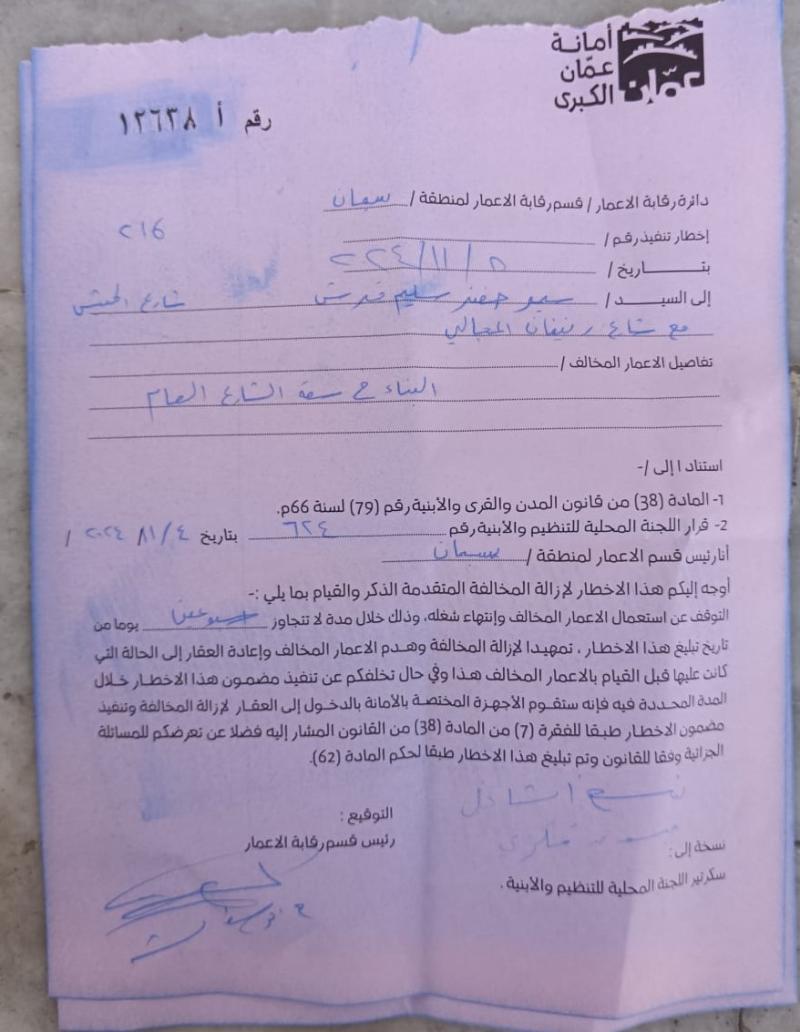 أمانة
عمّان
الكبرى
عمّان
رقم أ ١٢٦٣٨
دائرة رقابة الاعمار / قسم رقابة الاعمار لمنطقة /
إخطار تنفيذ رقم / ٢١٤
بتـــــاريخ / ٢٠٢٤/١١/٥
إلى السيـــد / سليم شارع
مع شارع المجالي
تفاصيل الاعمار المخالف /
البناء سعة الشارع العام
استنادا إلى /-
1- المادة (38) من قانون المدن والقرى والأبنية رقم (79) لسنة 66م.
2- قرار اللجنة المحلية للتنظيم والأبنية رقم ٦٢٤ بتاريخ ٤ /١١/ ٢٠٢٤ /
أنا رئيس قسم الاعمار لمنطقة /
أوجه إليكم هذا الاخطار لإزالة المخالفة المتقدمة الذكر والقيام بما يلي :-
التوقف عن استعمال الاعمار المخالف وإنتهاء شغله، وذلك خلال مدة لا تتجاوز اسبوعين يوما من
تاريخ تبليغ هذا الاخطار ، تمهيدا لإزالة المخالفة وهدم الاعمار المخالف وإعادة العقار إلى الحالة التي
كانت عليها قبل القيام بالاعمار المخالف هذا وفي حال تخلفكم عن تنفيذ مضمون هذا الاخطار خلال
المدة المحددة فيه فإنه ستقوم الأجهزة المختصة بالأمانة بالدخول إلى العقار لإزالة المخالفة وتنفيذ
مضمون الاخطار طبقا للفقرة (7) من المادة (38) من القانون المشار إليه فضلا عن تعرضكم للمسائلة
الجزائية وفقا للقانون وتم تبليغ هذا الاخطار طبقا لحكم المادة (62).
التوقيع :
رئيس قسم رقابة الاعمار
نسخة إلى:
سكرتير اللجنة المحلية للتنظيم والأبنية .